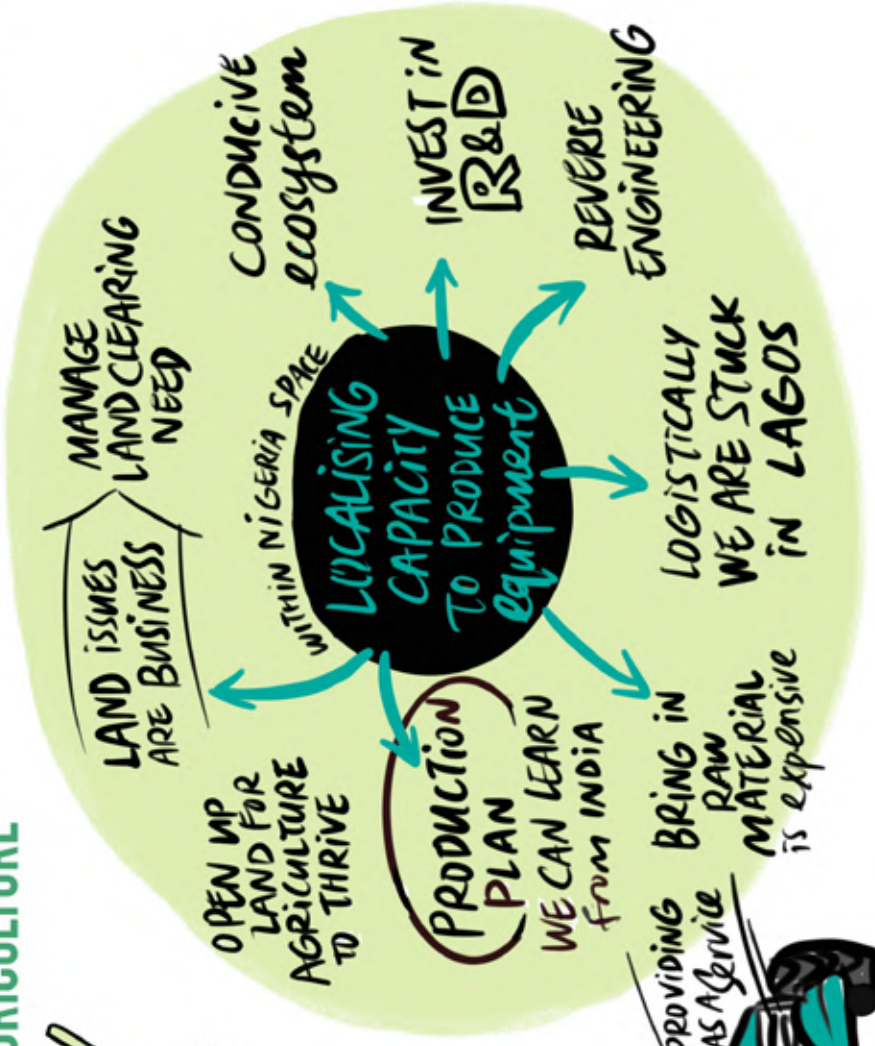 WITHIN NIGERIA SPACE
LOCALISING
CAPACITY
TO PRODUCE
equipment
LAND ISSUES
ARE BUSINESS
MANAGE
LAND CLEARING
NEED
CONDUCIVE
ecosystem
INVEST IN
R&D
REVERSE
ENGINEERING
LOGISTICALLY
WE ARE STUCK
IN LAGOS
BRING IN
RAW
MATERIAL
is expensive
PRODUCTION
PLAN
WE CAN LEARN
from INDIA
OPEN UP
LAND FOR
AGRICULTURE
TO THRIVE
PROVIDING
AS A Service